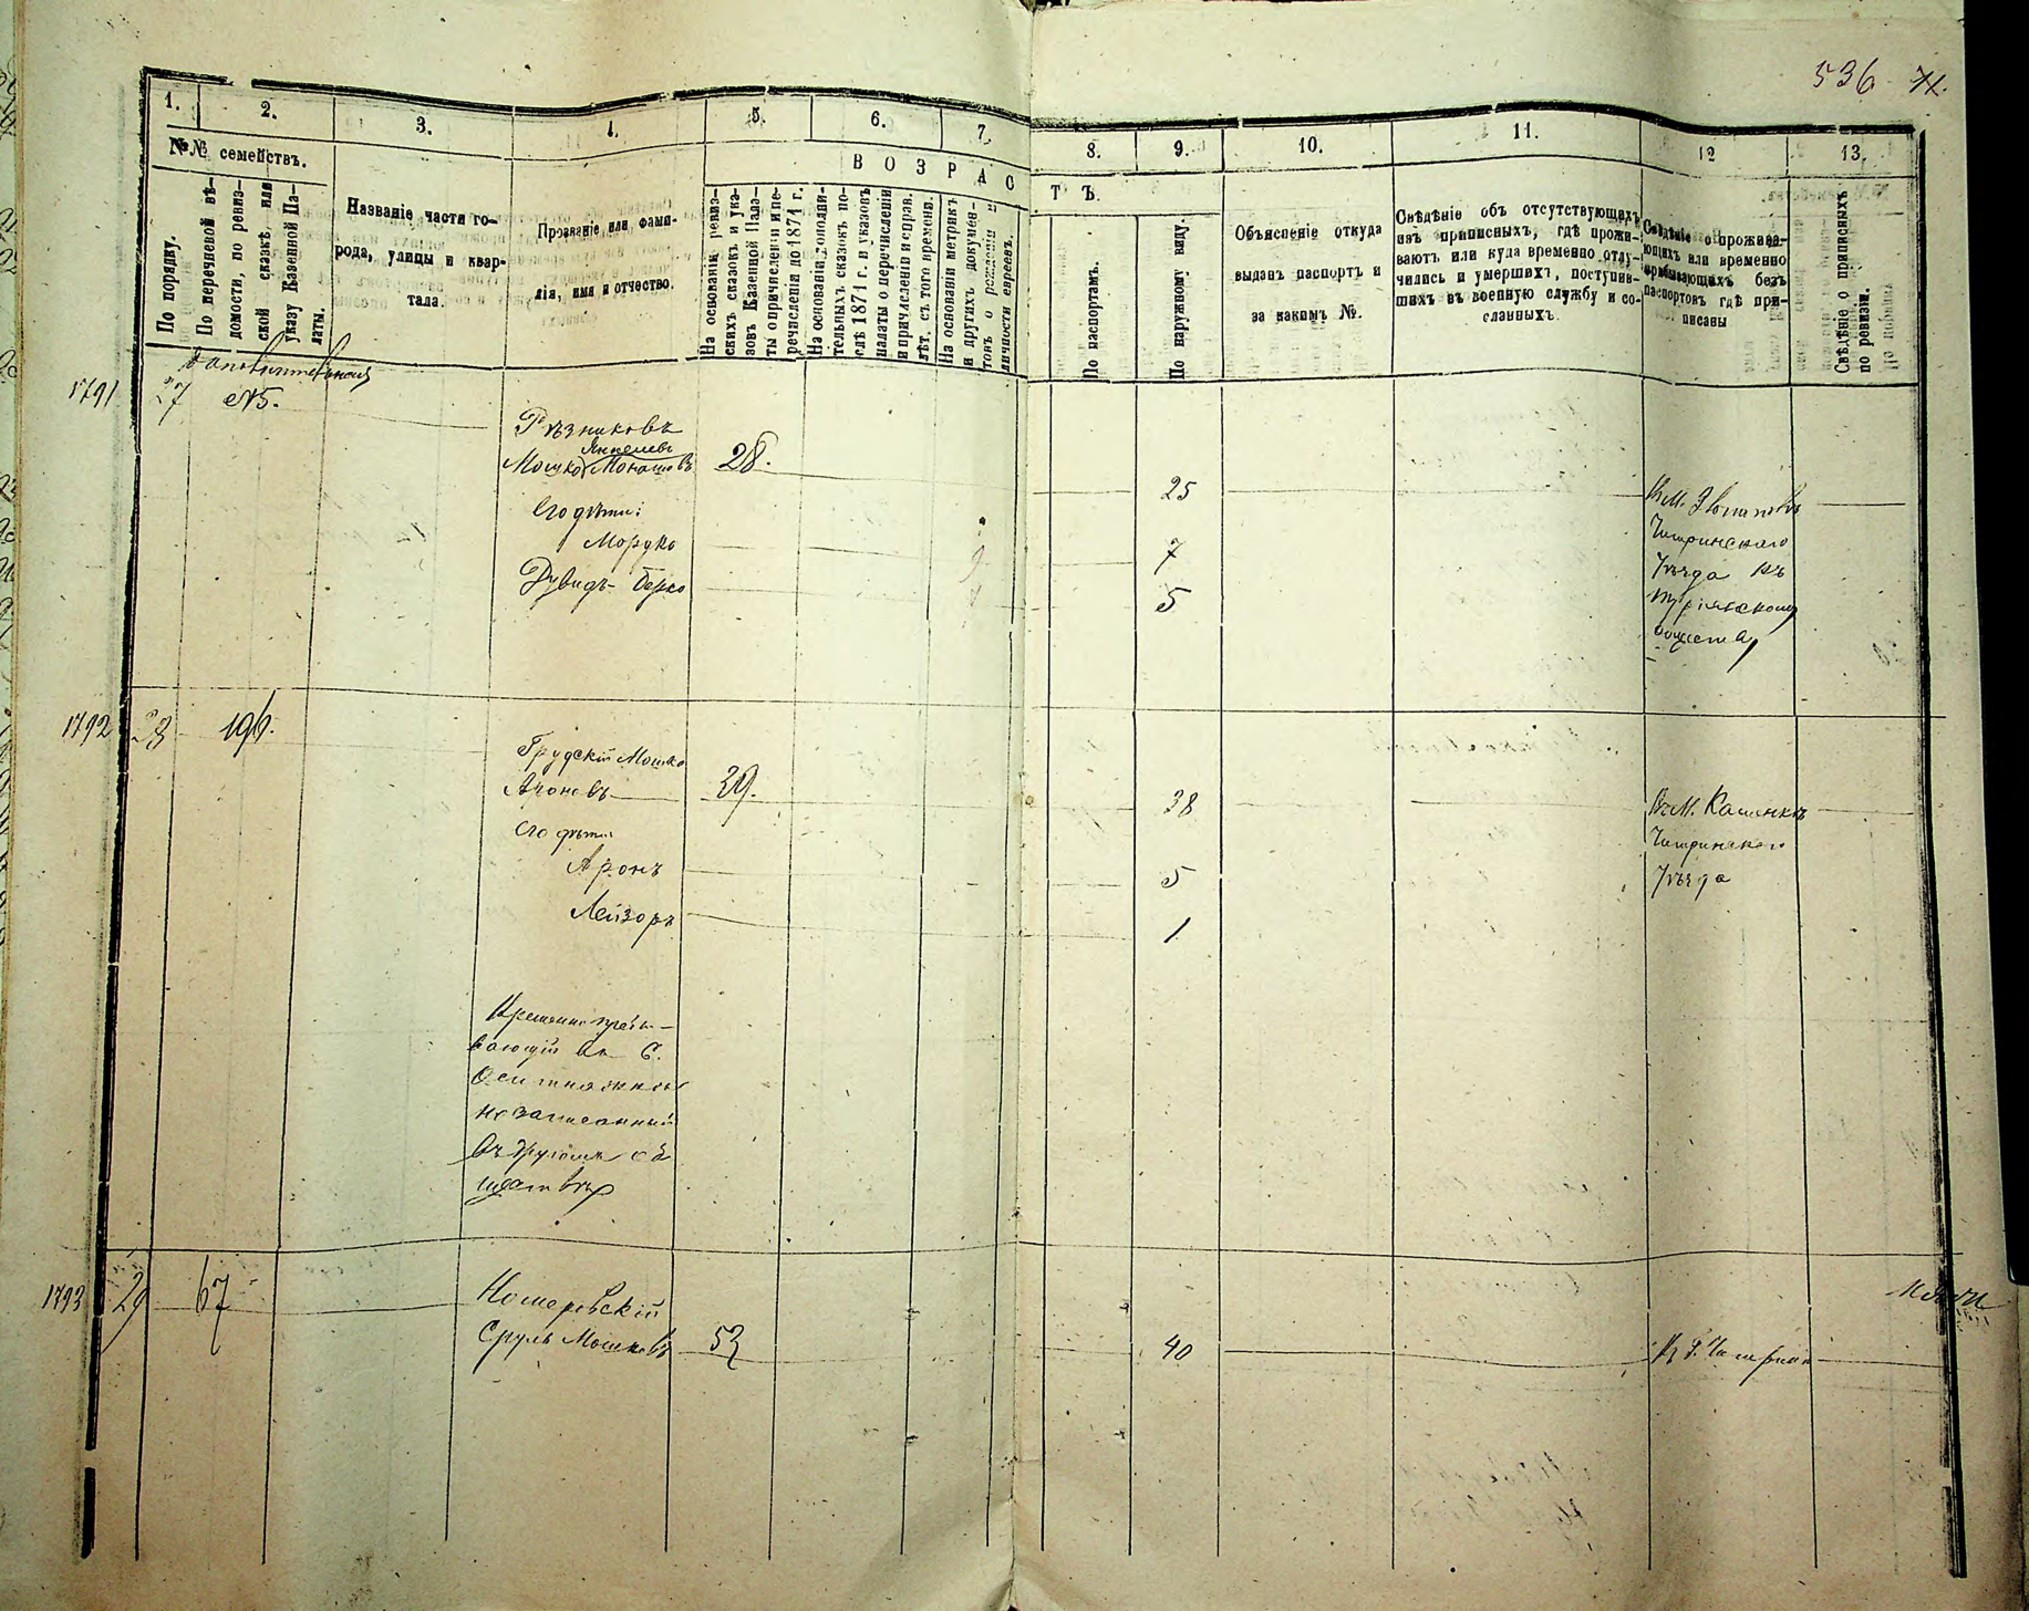 536
1. 2. 3. 4. 5. 6. 7. 8. 9. 10. 11. 12 13.
№№ семействъ.
ВОЗРАСТЪ.
По порядку.
По перечневой вѣ-
домости, по ревиз-
ской сказкѣ, или
указу Казенной Па-
латы.
Названіе части го-
рода, улицы и квар-
тала.
Прозваніе или фами-
лія, имя и отчество.
На основаніи ревиз-
скихъ сказокъ и ука-
зовъ Казенной Пала-
ты о причисленіи и пе-
речисленія до 1871 г.
На основаніи дополни-
тельныхъ сказокъ по-
слѣ 1871 г. и указовъ
палаты о перечисленіи
и причисленіи и справ.
лѣт. съ того времени.
На основаніи метрикъ
и другихъ докумен-
товъ о рожденіи и
личности евреевъ.
По паспортамъ.
По наружному виду.
Объясненіе откуда
выданъ паспортъ и
за какимъ №.
Свѣдѣніе объ отсутствующихъ
изъ приписныхъ, гдѣ прожи-
ваютъ или куда временно отлу-
чились и умершихъ, поступив-
шихъ въ военную службу и со-
сланныхъ.
Свѣдѣніе о прожива-
ющихъ или временно
пребывающихъ безъ
паспортовъ гдѣ при-
писаны
Свѣдѣніе о приписныхъ
по ревизіи.
1791 27 №5.
Рѣзниковъ
Янкелевъ
Мошко Монашовъ 28. 25
Его дѣти:
Мордко 7
Дувидъ-Берко 5
Чигринскаго
Уѣзда къ
обществу
1792 28 196.
Грудскій Мошко
Ароновъ 39. 38 Въ М. Каменкѣ
Его дѣти Чигринскаго
Аронъ 5 Уѣзда
Лейзоръ 1
Временно пребы-
вающій въ С.
Оситняжкѣ
не записанный
въ другомъ об-
ществѣ
1793 29 67
Номеровскій
Сруль Мошковъ 53 40 Къ Г. Чигрину